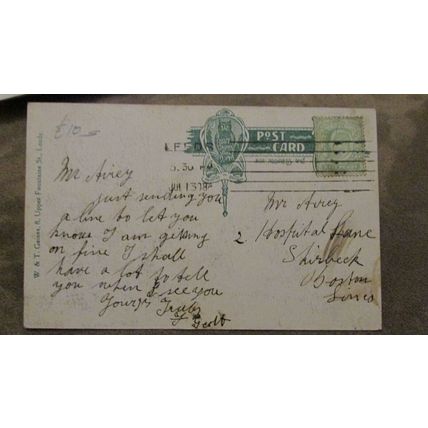 £10
POST
CARD
LEEDS
5.30 PM
W & T. Gaines, 8, Upper Fountaine St., Leeds.
Mr Avey
just sending you
a line to let you
know I am getting
on fine I shall
have a lot to tell
you when I see you
Yours Truly
Mr Avey
2 Hospital Lane
Skirbeck
Boston
Lincs